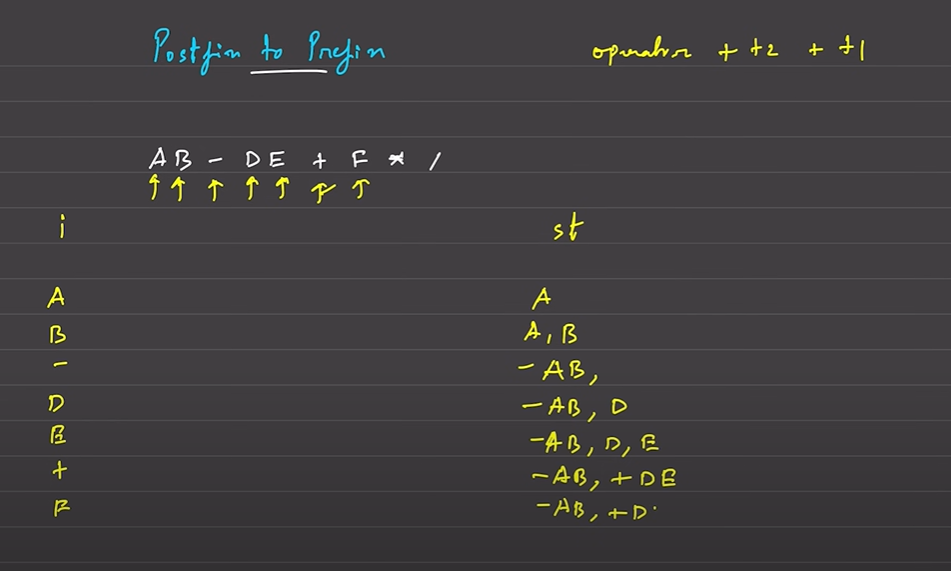 Postfix to Prefix operator + t2 + t1
A B - D E + F * /
i st
A A
B A, B
- - AB,
D - AB, D
E -AB, D, E
+ -AB, + DE
F -AB, + D